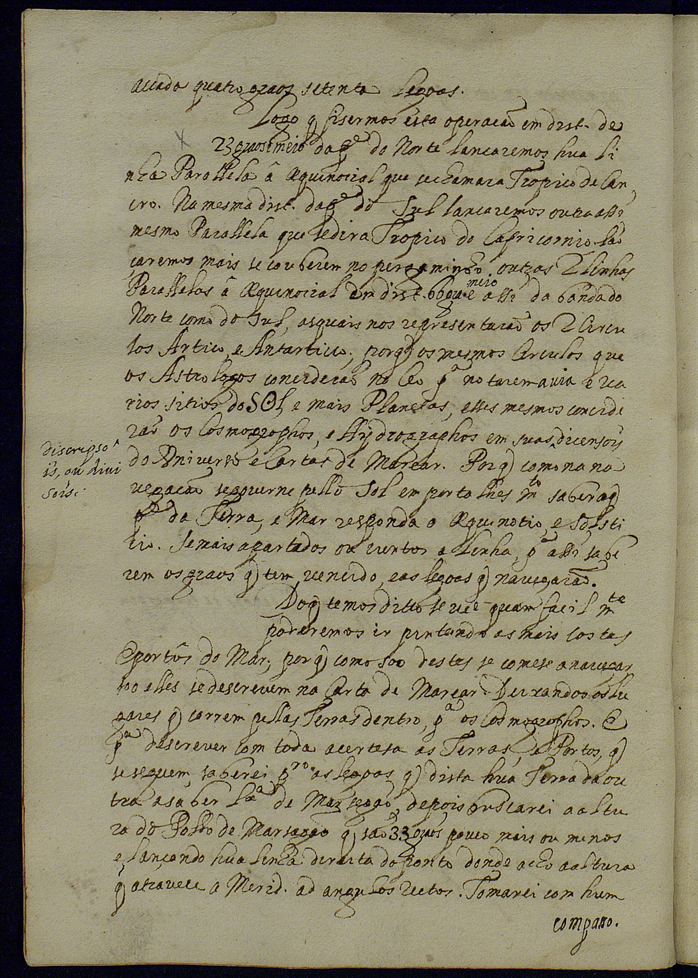 quatro graos setenta legoas.
Logo q fisermos esta operacaõ em dist. de
23 graos e meio da pte do Norte lancaremos hua li
nha Parallela â Æquinocial que se chamara Tropico de Can
cro. Na mesma dist. da pte do Sul lancaremos outra assi
mesmo Parallela que se dira Tropico do Capricornio. lan
caremos mais se couberem no pergaminho outras 2 linhas
Parallelas â Æquinocial em dist. 66 gr. e meio assi da banda do
Norte como do Sul, as quais nos representaraõ os 2 Circu
los Artico, e Antartico; porq os mesmos Circulos que
os Astrologos concideraõ no Ceo pª notarem a via e va
rios sitios do SOl, e mais Planetas, esses mesmos concide
raõ os Cosmographos, e Hydrographos em suas
discripso
is, ou divi
sois.
do Universo e Cartas de Marear. Porq como na na
vegacaõ se governe pello Sol em porta lhes mto saber a q
pte da Terra, e Mar responda o Æquinotio, e Solsti
cio. Se mais apartados ou certos a linha, pª assi sabe
rem os graos q tem vencido, e as legoas q navegaraõ.
Do q temos ditto se vee quam facil mte
poderemos ir pintando as mais costas
e portos do Mar; porq como soo destes se comese a navegar
soo elles se descrevem na Carta de Marear. Deixando os lu
gares q correm pellas Terras dentro, pª os Cosmographos. E
pª descrever com toda acertesa as Terras, e Portos, q
se seguem, saberei pro as legoas, q dista hua Terra da ou
tra a saber de Mazagaõ, depois buscarei a altu
ra do Porto de Marsagaõ q saõ 33 graos pouco mais ou menos
e lancando hua linha direita do ponto donde acho a altura
q atravece a Merid. ad angulos rectos. Tomarei com hum
compasso.